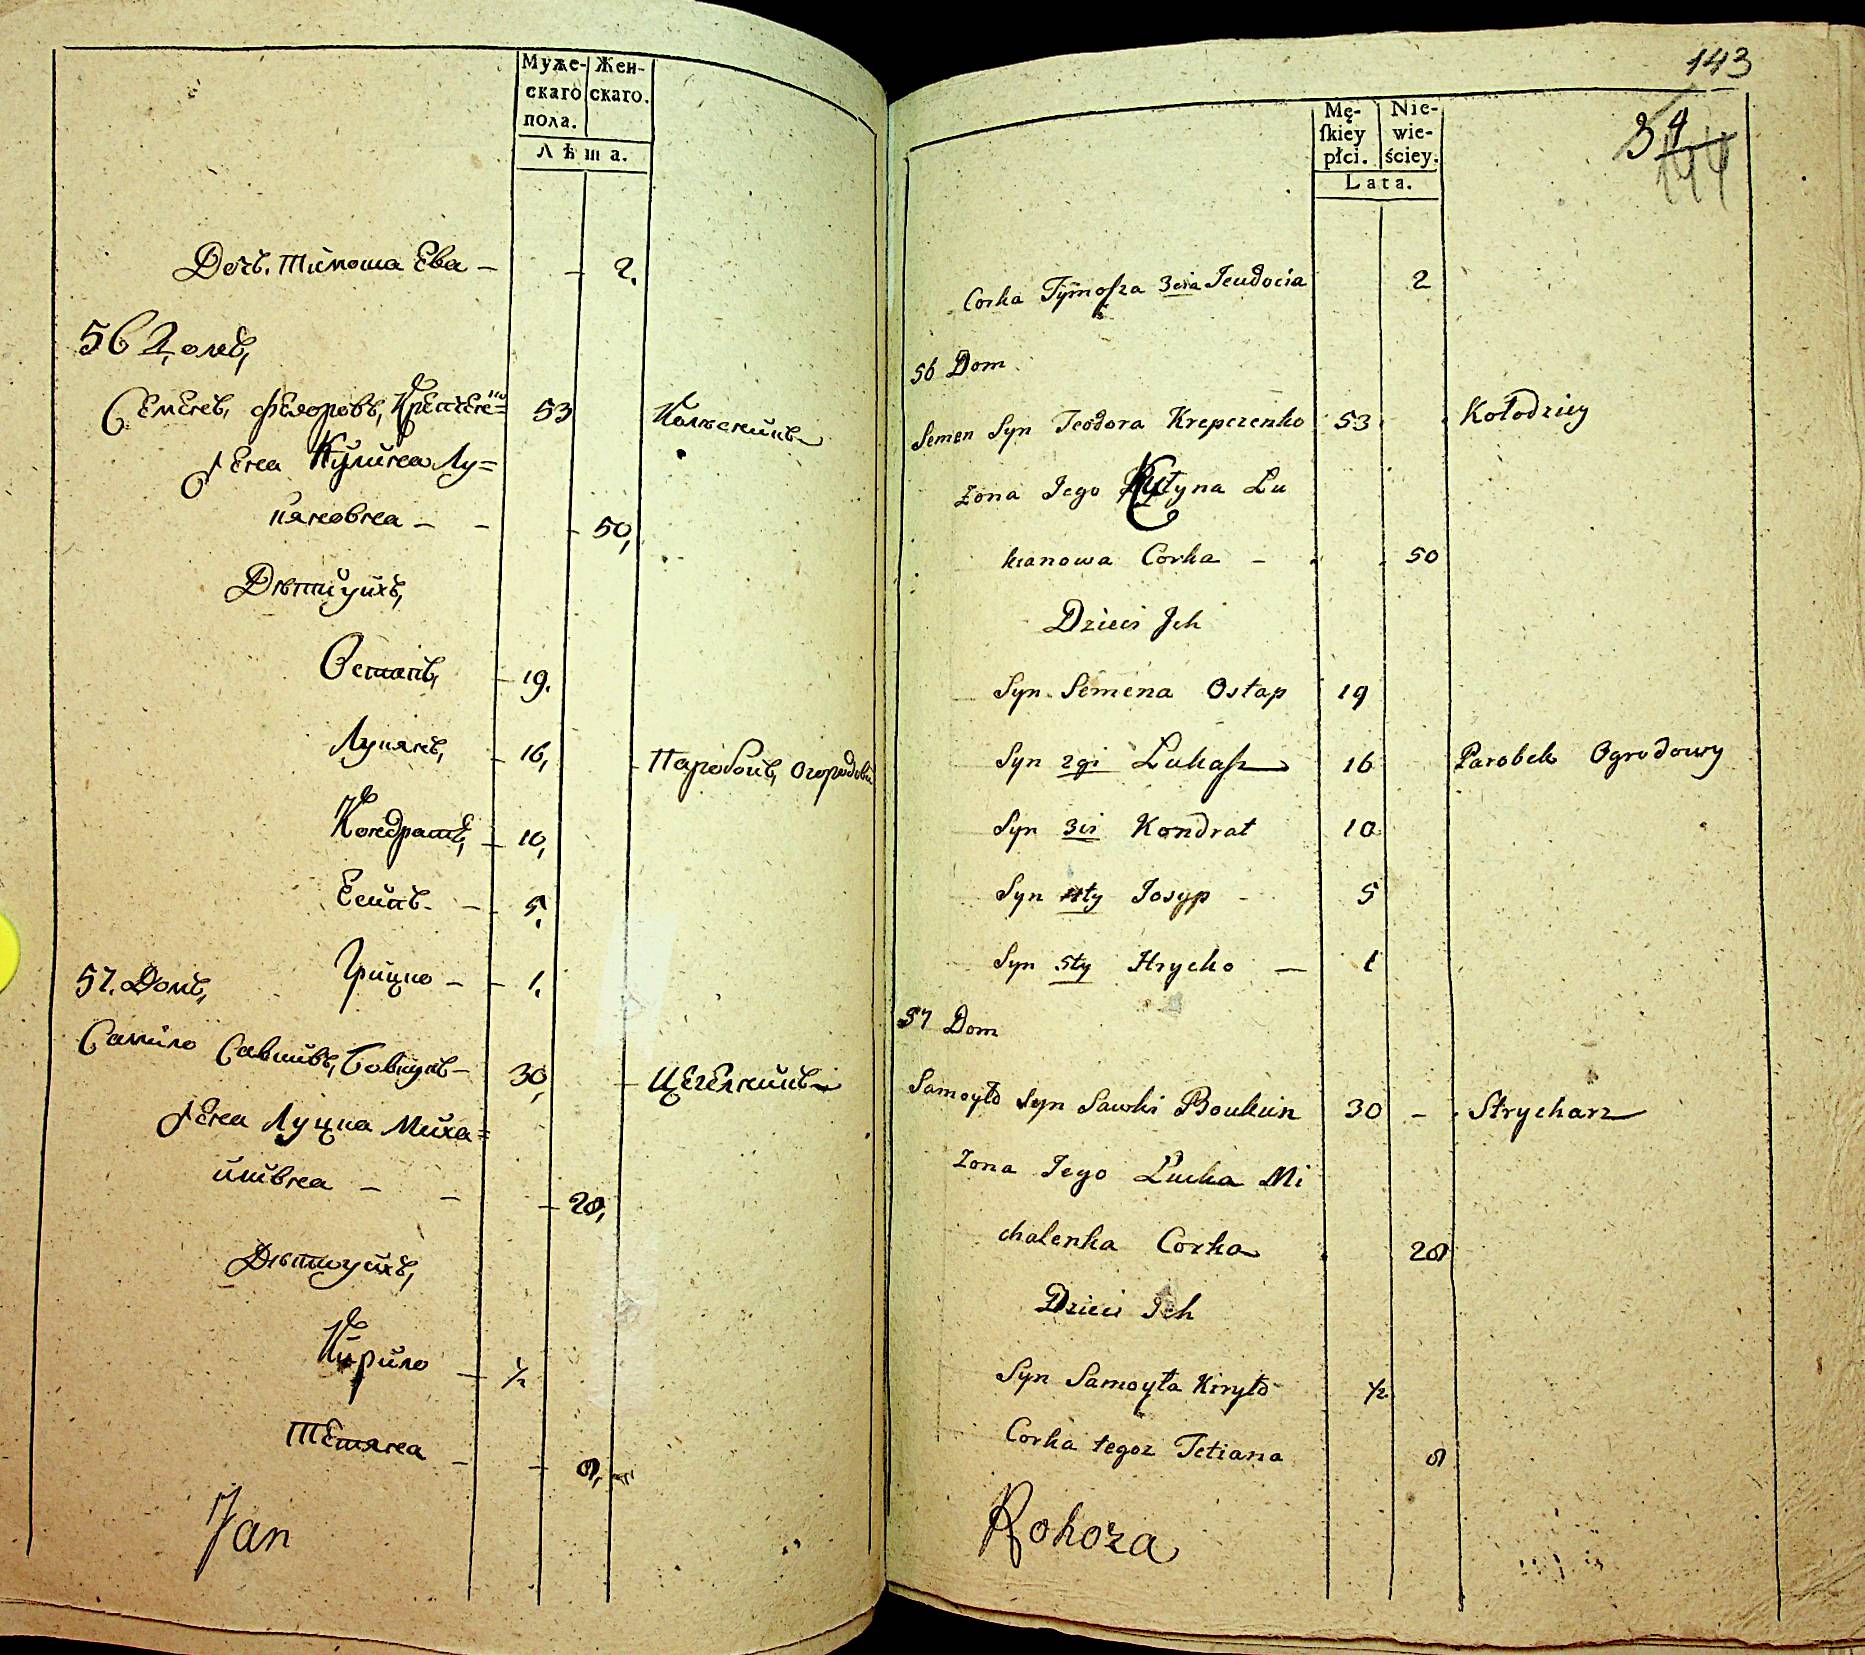 Муже- Жен-
скаго скаго.
пола.
Лѣта.
Дочь Тимоша Ева - - 2.
56 Домъ,
Семенъ, Федоровъ, 53
Жена Кулина Лу=
кяновна - - - 50,
Дѣти ихъ,
Остапъ, - 19.
Лукянъ, - 16, - Паробокъ, Огородовий
Кондратъ, - 10,
Есипъ - - 5.
57. Домъ, Грицко - - 1.
Самило Савинъ, Бовкунъ - 30, - Цегелникъ
Жена Луцка Миха=
йливна - - - 20,
Дѣти ихъ,
Кирило - ½
Тетяна - -
Jan
143
Mę- Nie-
ſkiey wie-
płci. ściey.
Lata.
34
144
Corka Tymoſza 3cia Jeudocia 2
56 Dom
Semen Syn Teodora Krepczenko 53 Kołodziey
Zona Jego Kytyna Lu
kianowa Corka - 50
Dzieci Jch
Syn Semena Ostap 19
Syn 2gi Lukaſz 16 Parobek Ogrodowy
Syn 3ci Kondrat 10
Syn 4ty Josyp - 5
Syn 5ty Hrycko - 1
57 Dom
Samoyło Syn Sawki Boukun 30 - Strycharz
Zona Jego Lucka Mi
chalenka Corka 20
Dzieci Jch
Syn Samoyła Kiryło ½
Corka tegoz Tetiana
Rohoza